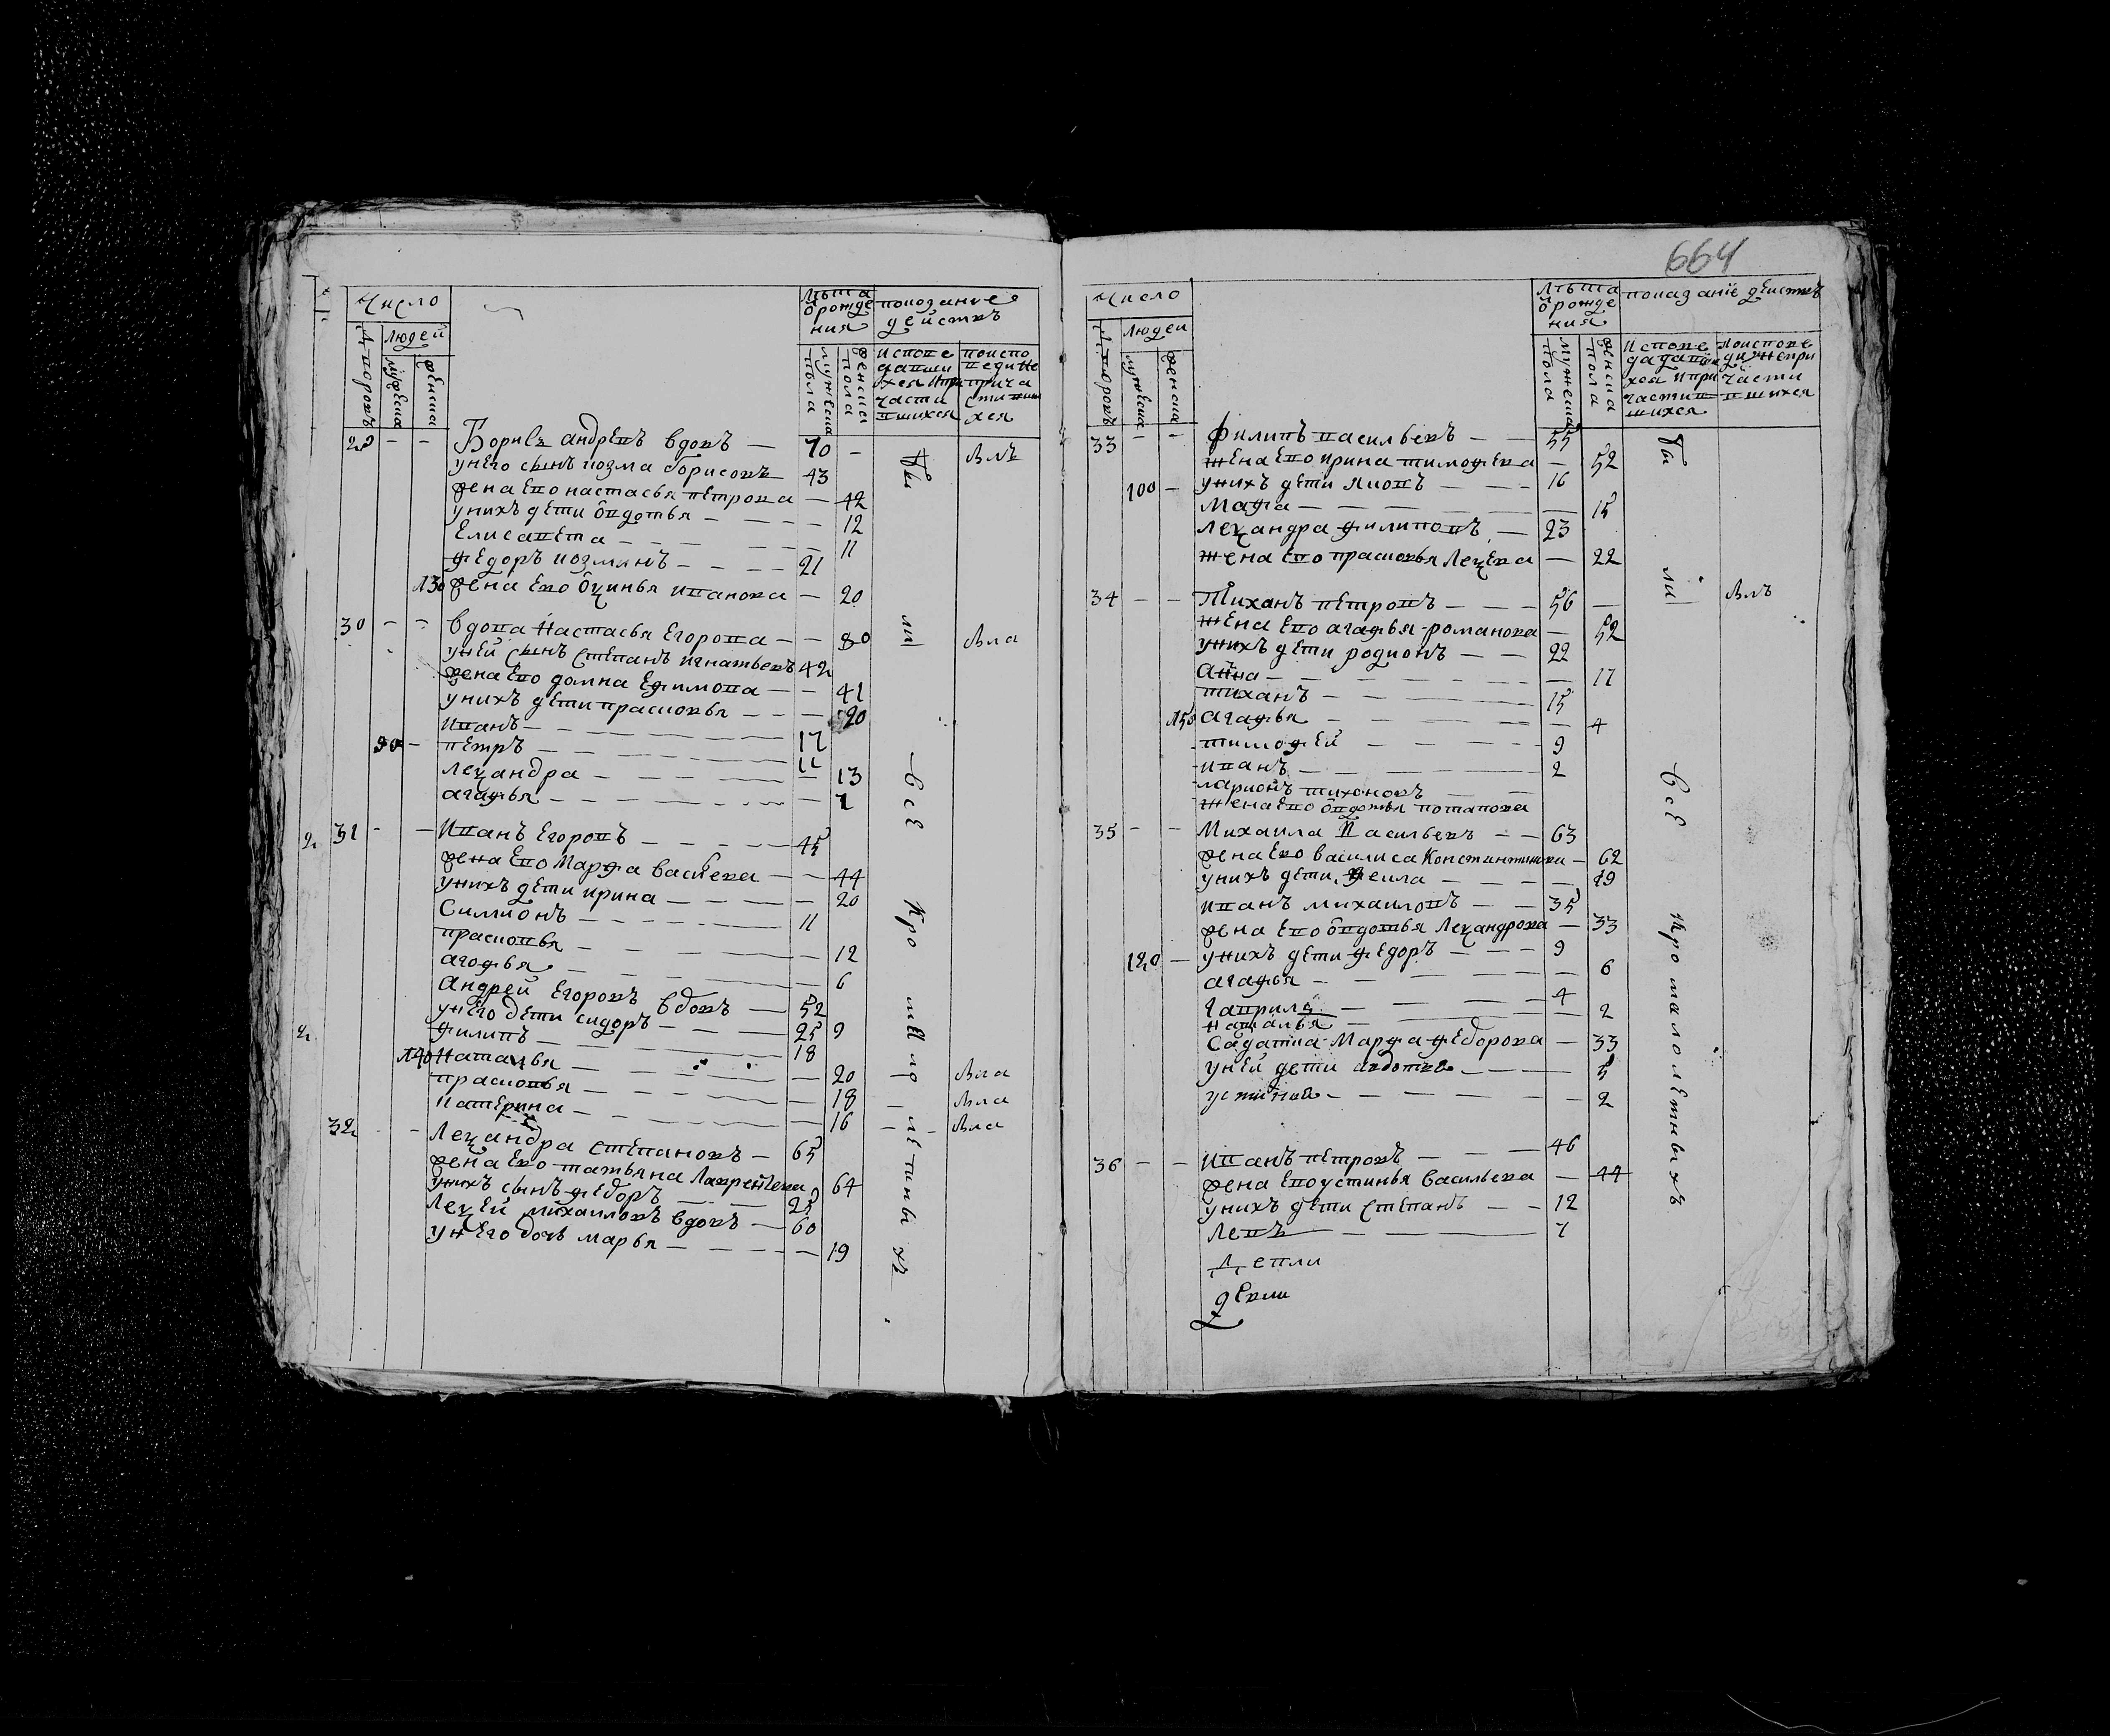 Число
Людей
Дворовъ
мужеска
женска
Лѣта
ѿ рожде
ния
мужеска
пола
женска
пола
показание
действъ
исповедавши
хся и при
части
вшихся
по испо
веди не
прича
стивши
хся
29 - - Борисъ андревъ вдовъ — 70 -
у него сынъ козма борисовъ 43
жена ево настасья петрова — 42
у нихъ дети овдотья — 12
Елисавета — 11
федоръ козминъ — 21
130 жена ево оксинья иванова — 20
30 - - вдова настасья Егорова — 80
у ней сынъ степанъ игнатьевъ 42
жена ево домна Ефимова — 41
у нихъ дети прасковья — 20
иванъ — 17
90 - петръ — 11
лександра — 13
агафья — 7
2 31 - - иванъ Егоровъ — 45
жена ево Марфа васиева — 44
у нихъ дети ирина — 20
Симионъ — 11
прасковья — 12
агофья — 6
андрей Егоровъ вдовъ — 52
у него дети сидоръ — 25 9
2 филипъ — 18
140 наталья — 20
прасковья — 18
катерина — 16
32 - лександра степановъ — 65
жена ево татьяна лаврентева 64
у нихъ сынъ федоръ — 25
лексей михаиловъ вдовъ — 60
у него дочь марья — 19
бы
ли
все
кро
ме
мало
летныхъ
664
Число
Людеи
Дворовъ
мужеска
женска
Лѣта
ѿ рожде
ния
мужеска
пола
женска
пола
показаніе действъ
исповедавши
хся и при
части
вшихся
по испове
ди не при
части
вшихся
33 - - филипъ васильевъ — 55
жена ево ирина тимофева — 52
100 - у нихъ дети — 16
— 15
лександра филиповъ — 23
жена ево прасковья лексева — 22
34 - - Тиханъ петровъ — 56 —
жена ево агафья романова — 52
у нихъ дети родионъ — 22
анна — 17
тиханъ — 15
150 агафья — 4
тимофей — 9
иванъ — 2
ларионъ тихоновъ —
жена ево овдотья потапова
35 - - Михаила васильевъ — 63
жена ево василиса Константинова — 62
у нихъ дети фекла — 19
иванъ михаиловъ — 35
жена ево овдотья лександрова — 33
120 - у нихъ дети федоръ — 9
агафья — 6
гаврила — 4
наталья — 2
Салатка Марфа федорова — 33
у ней дети авдотья — 5
устинья — 2
36 - - иванъ петровъ — 46
жена ево устинья васильева — 44
у нихъ дети степанъ — 12
левъ — 7
бы
ли
все
кро
малолетныхъ